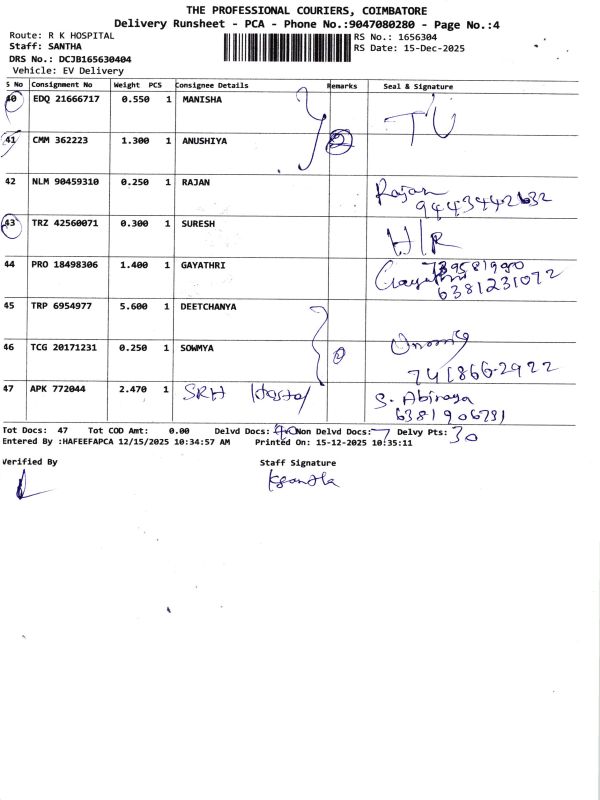 THE PROFESSIONAL COURIERS, COIMBATORE
Delivery Runsheet - PCA - Phone No.:9047080280 - Page No.:4
Route: R K HOSPITAL
RS No.: 1656304
Staff: SANTHA
RS Date: 15-Dec-2025
DRS No.: DCJB165630404
Vehicle: EV Delivery
S No Consignment No Weight PCS Consignee Details Remarks Seal & Signature
40 EDQ 21666717 0.550 1 MANISHA
41 CMM 362223 1.300 1 ANUSHIYA 2
42 NLM 90459310 0.250 1 RAJAN Rajan
43 TRZ 42560071 0.300 1 SURESH H/R
44 PRO 18498306 1.400 1 GAYATHRI Gayathri
6381231072
45 TRP 6954977 5.600 1 DEETCHANYA
46 TCG 20171231 0.250 1 SOWMYA 2
741866-2922
47 APK 772044 2.470 1 SRH Hostel S. Abinaya
Tot Docs: 47 Tot COD Amt: 0.00 Delvd Docs: 40 Non Delvd Docs: 7 Delvy Pts: 30
Entered By :HAFEEFAPCA 12/15/2025 10:34:57 AM Printed On: 15-12-2025 10:35:11
Verified By Staff Signature